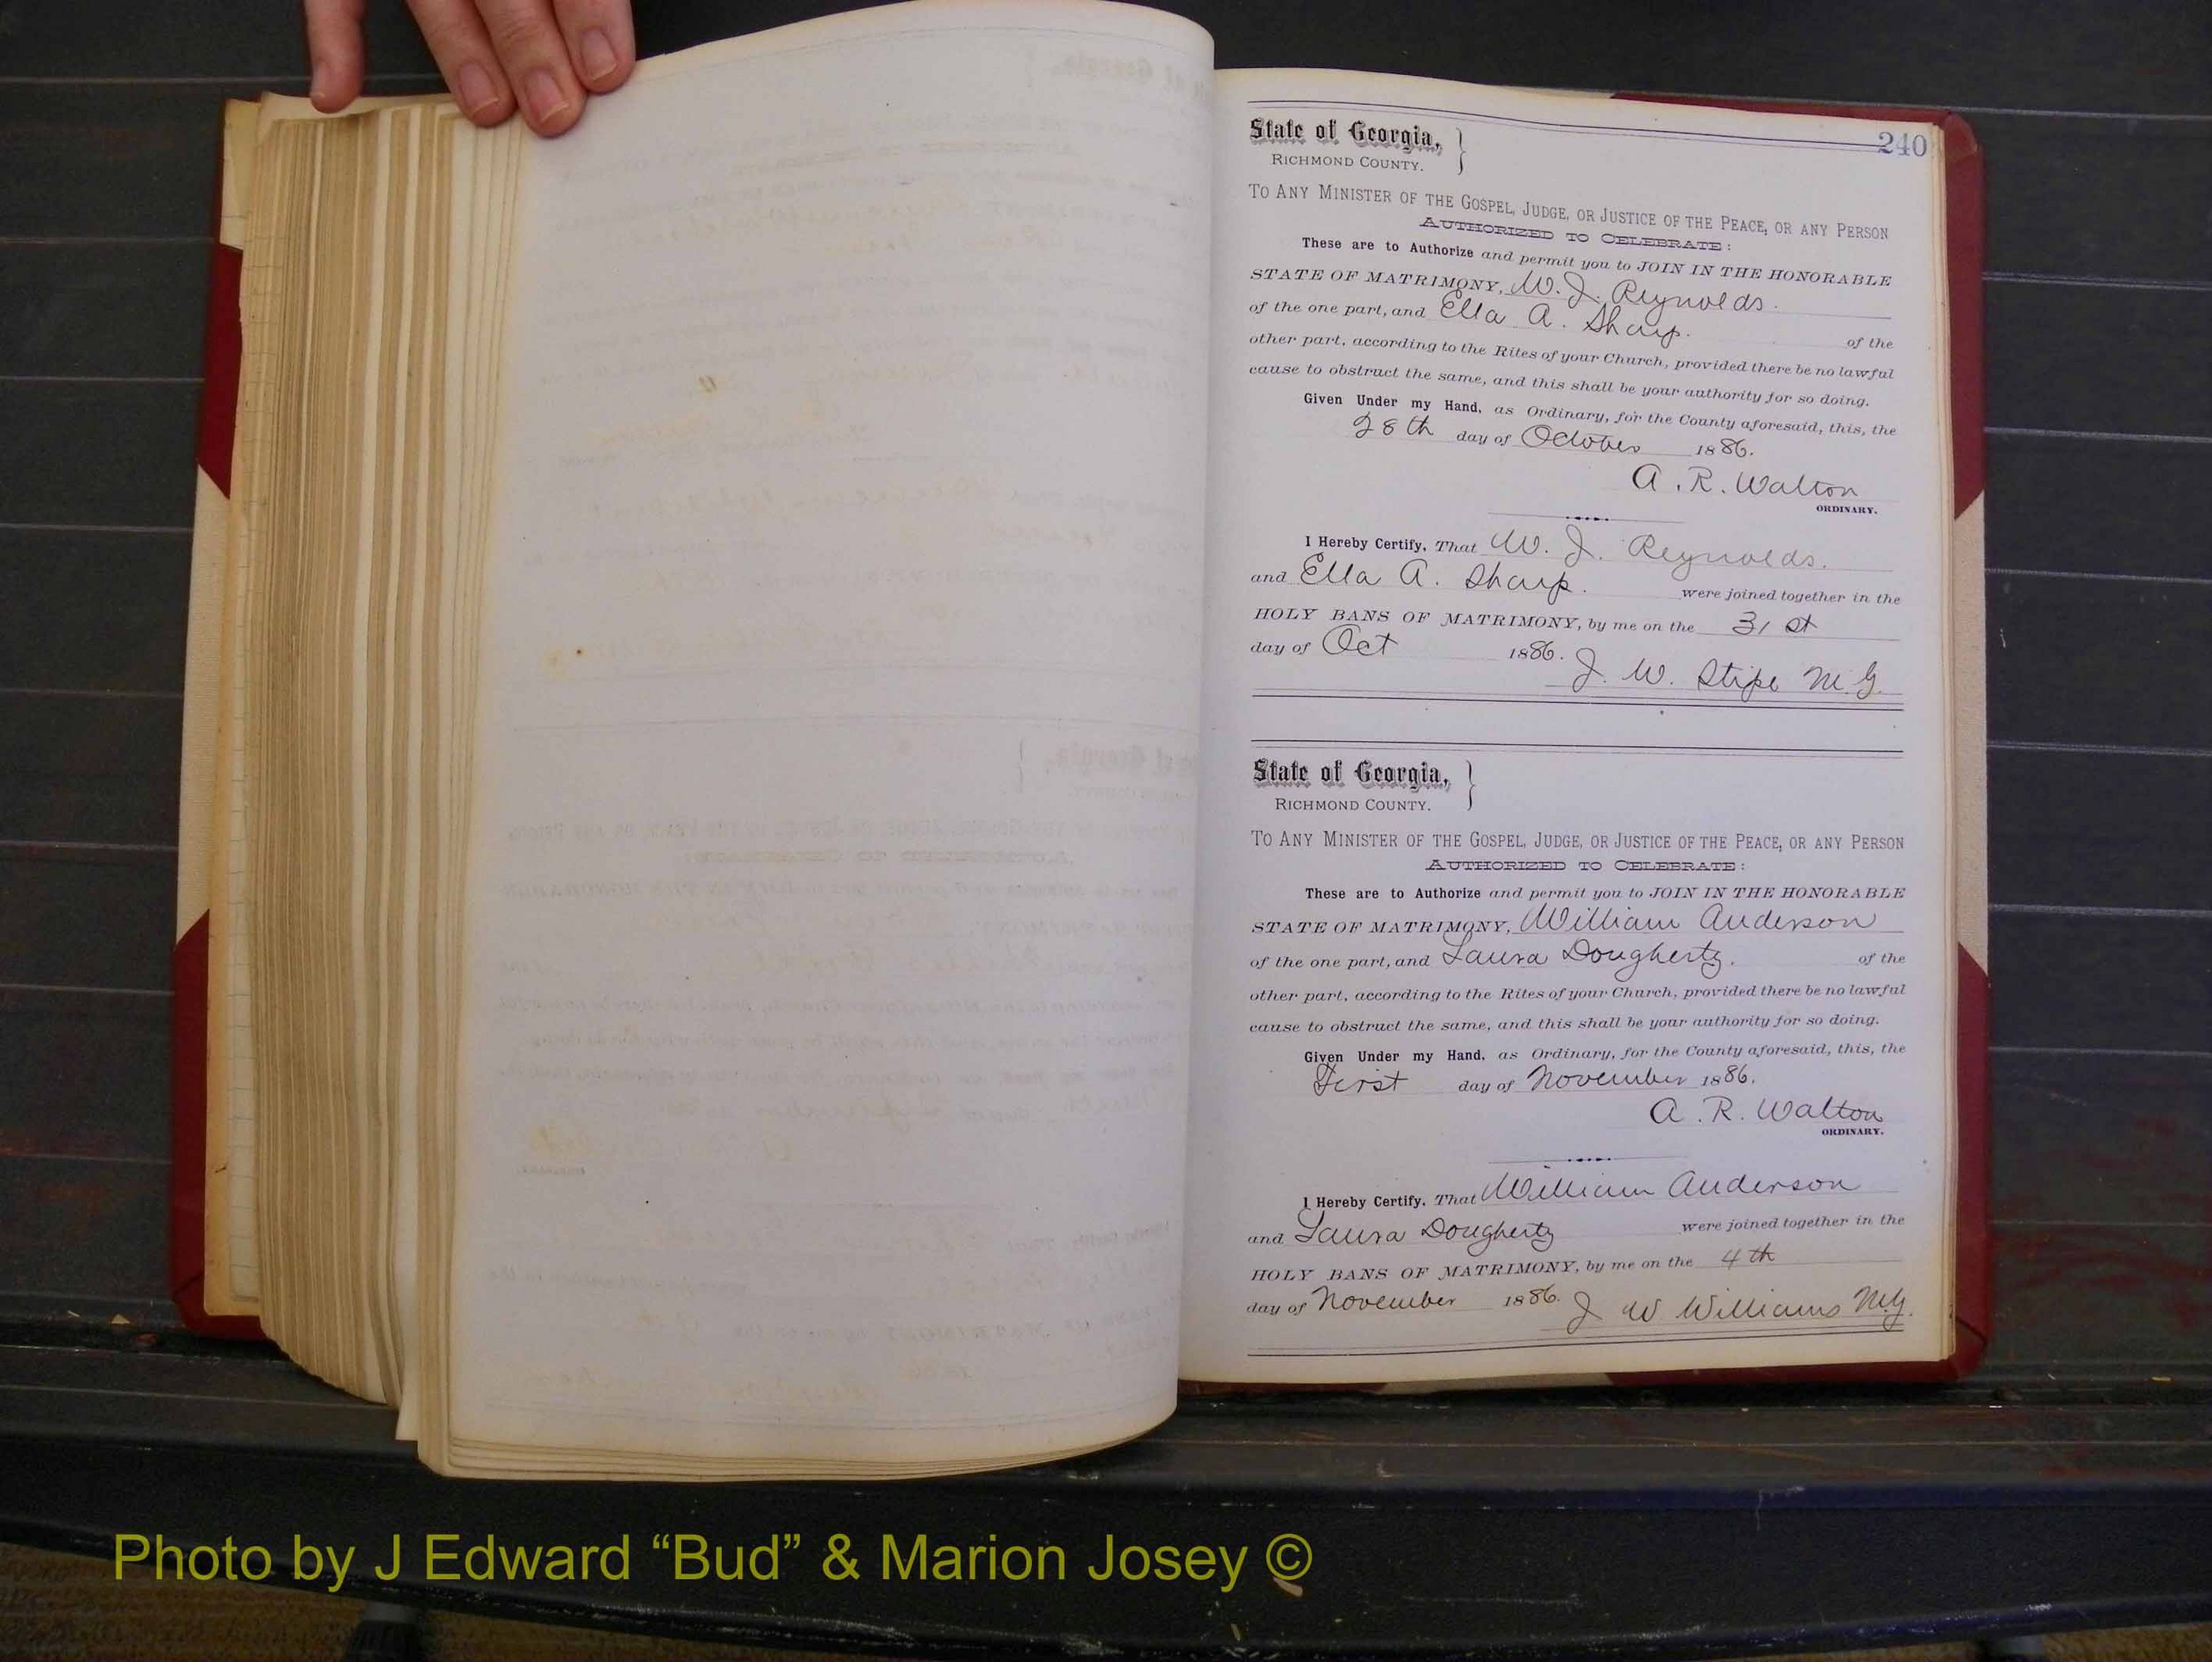 240
State of Georgia, }
RICHMOND COUNTY.
TO ANY MINISTER OF THE GOSPEL, JUDGE, OR JUSTICE OF THE PEACE, OR ANY PERSON
AUTHORIZED TO CELEBRATE:
These are to Authorize and permit you to JOIN IN THE HONORABLE
STATE OF MATRIMONY, W. J. Reynolds.
of the one part, and Ella A. Sharp. of the
other part, according to the Rites of your Church, provided there be no lawful
cause to obstruct the same, and this shall be your authority for so doing.
Given Under my Hand, as Ordinary, for the County aforesaid, this, the
28th day of October 1886.
A. R. Walton
ORDINARY.
I Hereby Certify, That W. J. Reynolds.
and Ella A. Sharp. were joined together in the
HOLY BANS OF MATRIMONY, by me on the 31st
day of Oct 1886.
J. W. Stipe M.G.
State of Georgia, }
RICHMOND COUNTY.
TO ANY MINISTER OF THE GOSPEL, JUDGE, OR JUSTICE OF THE PEACE, OR ANY PERSON
AUTHORIZED TO CELEBRATE:
These are to Authorize and permit you to JOIN IN THE HONORABLE
STATE OF MATRIMONY, William Anderson
of the one part, and Laura Dougherty. of the
other part, according to the Rites of your Church, provided there be no lawful
cause to obstruct the same, and this shall be your authority for so doing.
Given Under my Hand, as Ordinary, for the County aforesaid, this, the
First day of November 1886.
A. R. Walton
ORDINARY.
I Hereby Certify, That William Anderson
and Laura Dougherty were joined together in the
HOLY BANS OF MATRIMONY, by me on the 4th
day of November 1886. J W Williams M.G.
Photo by J Edward “Bud” & Marion Josey ©